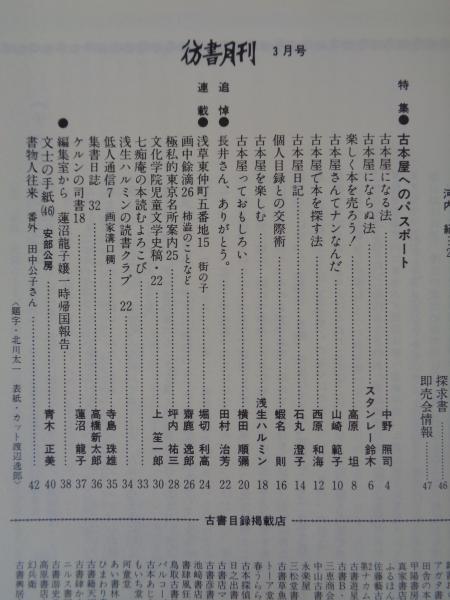 彷書月刊 3月号
河内 紀…2
特集●古本屋へのパスポート
古本屋になる法……中野 照司 4
古本屋にならぬ法……スタンレー鈴木 6
楽しく本を売ろう！……高原 坦 8
古本屋さんてナンなんだ……山崎 範子 10
古本屋で本を探す法……西原 和海 12
古本屋日記……石丸 澄子 14
個人目録との交際術……蝦名 則 16
古本屋を楽しむ……浅生ハルミン 18
古本屋っておもしろい……横田 順彌 20
追悼●長井さん、ありがとう。……田村 治芳 22
連載●浅草東仲町五番地15 街の子……堀切 利高 24
画中餘滴26 柿澁のことなど……齋鹿 逸郎 26
極私的東京名所案内25……坪内 祐三 28
文化学院児童文学史稿・22……上 笙一郎 30
七痴庵の本読むよろこび……33
浅生ハルミンの読書クラブ 22……34
低人通信7 画家溝口稠……寺島 珠雄 35
集書日誌 32……高橋新太郎 36
ケルンの司書18……蓮沼 龍子 37
●編集室から 蓮沼龍子嬢一時帰国報告……38
文士の手紙(46) 安部公房……青木 正美 40
書物人往来 番外 田中公子さん……42
〈題字・北川太一 表紙・カット渡辺逸郎〉
探求書……46
即売会情報……47
古書目録掲載店